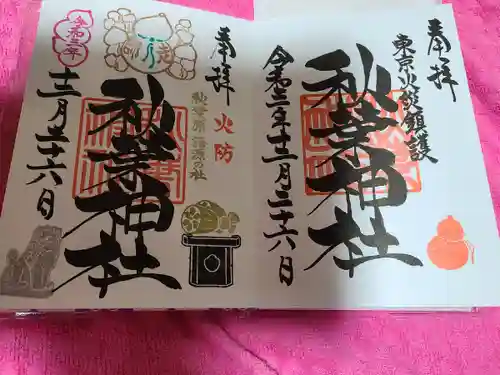 奉拝
東京火災鎮護
秋葉神社
令和三年十二月二十六日
奉拝
火防
秋葉原語源の社
秋葉神社
令和三年
十二月二十六日